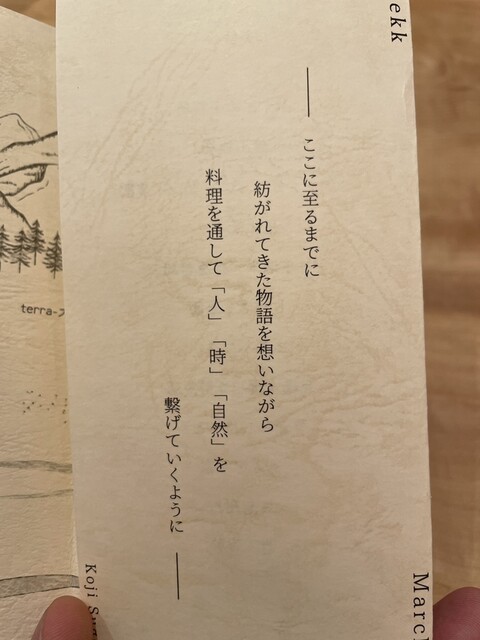 ── ここに至るまでに
紡がれてきた物語を想いながら
料理を通して「人」「時」「自然」を
繋げていくように ──
terra-
Koji